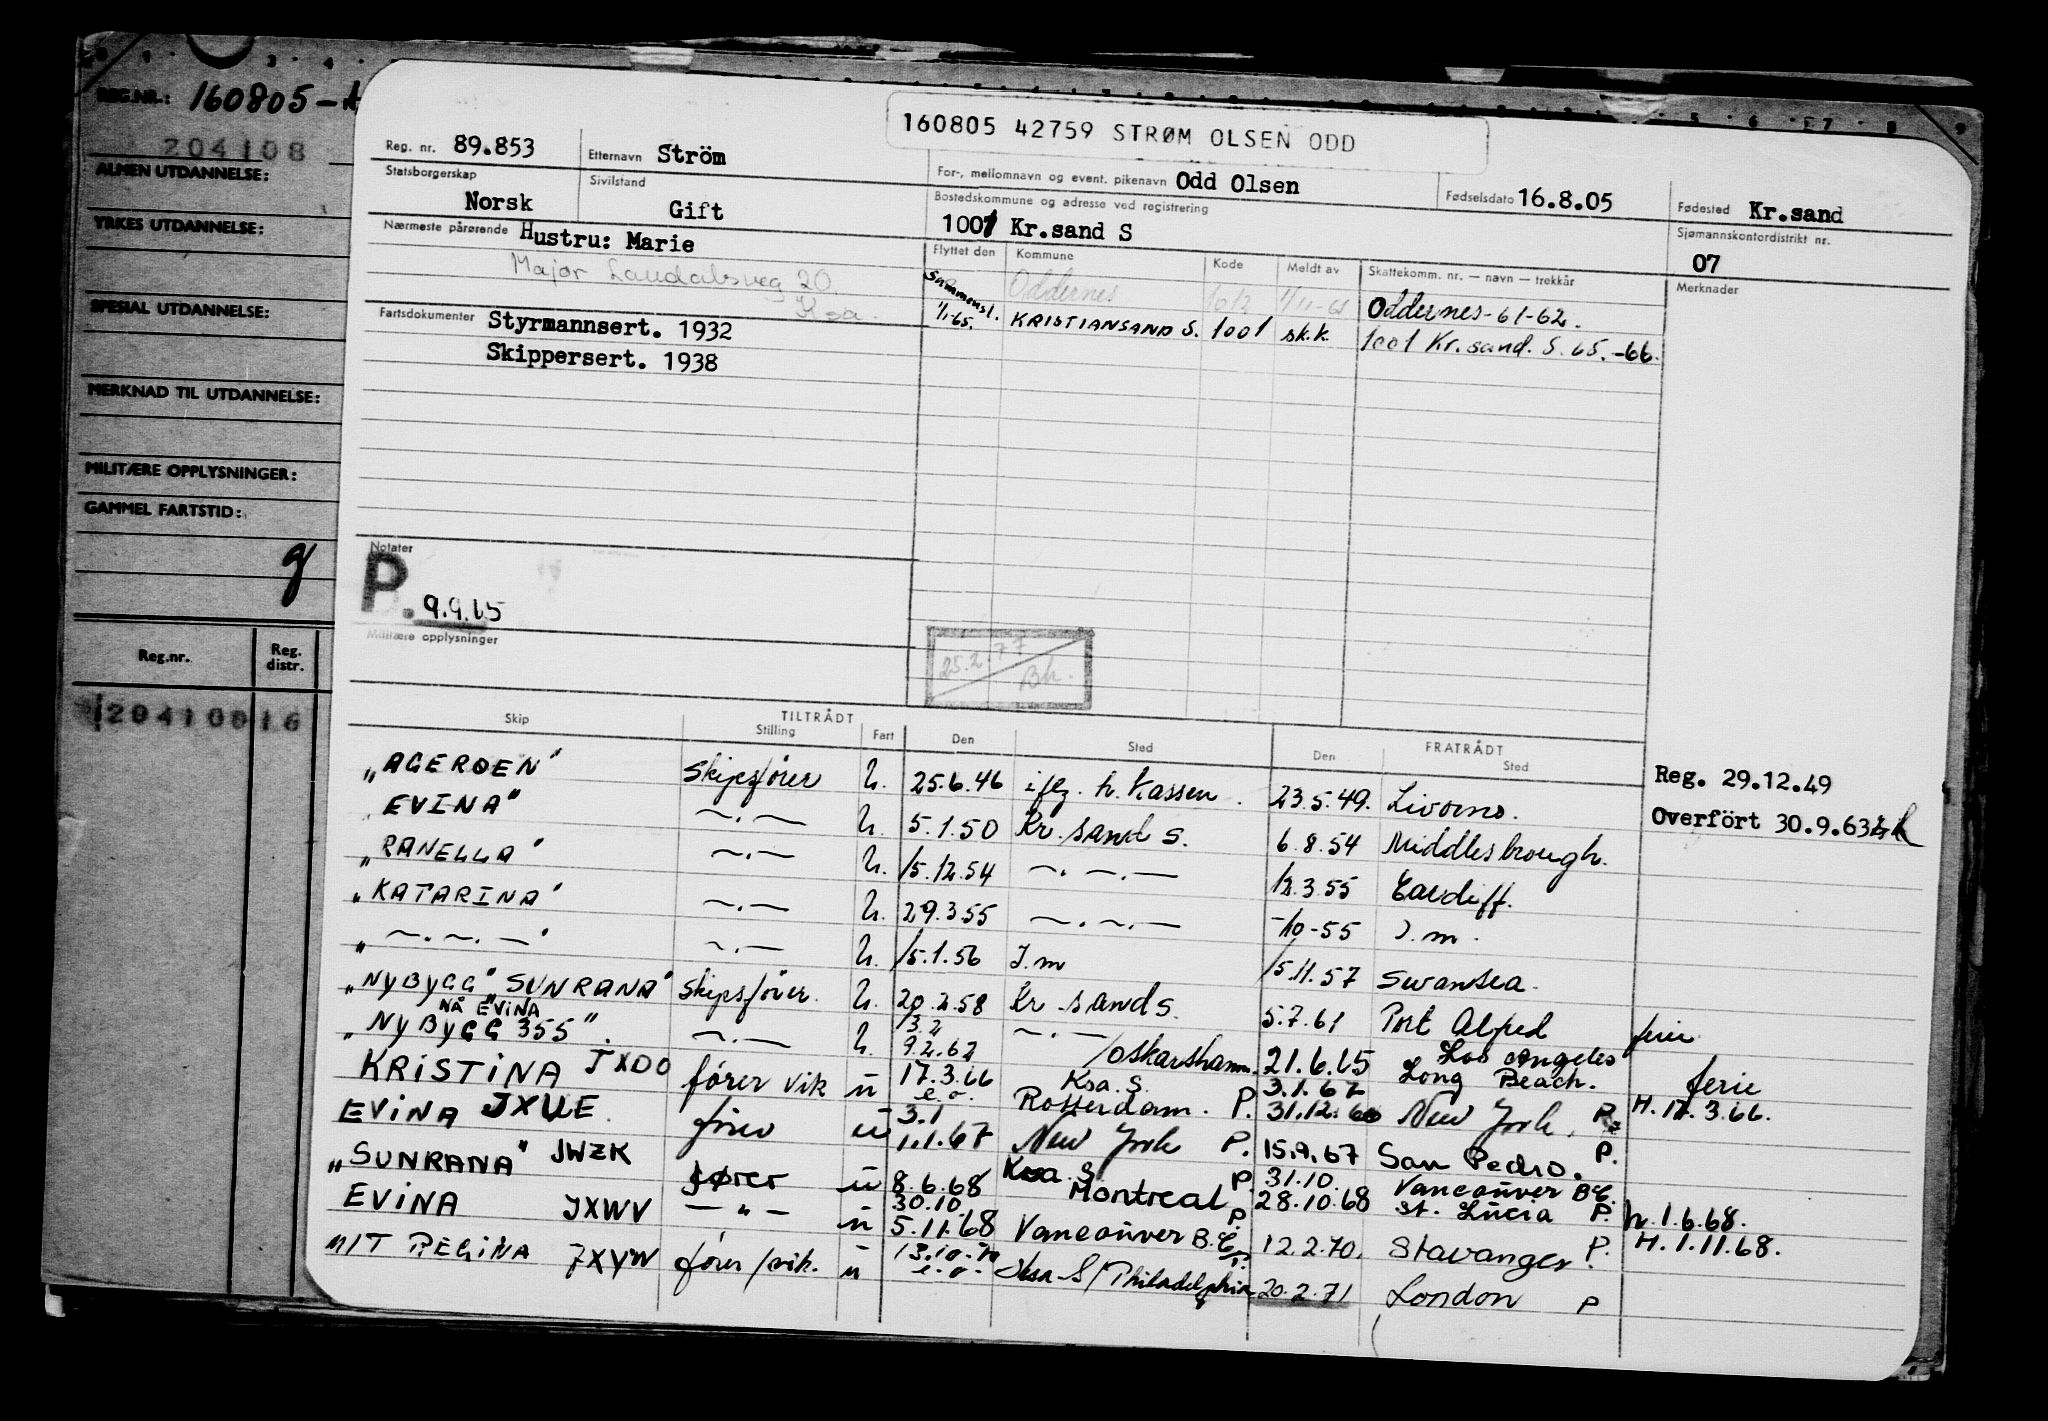 REG.NR.: 160805-
204108
ALMEN UTDANNELSE:
YRKES UTDANNELSE:
SPESIAL UTDANNELSE:
MERKNAD TIL UTDANNELSE:
MILITÆRE OPPLYSNINGER:
GAMMEL FARTSTID:
Reg.nr. Reg. distr.
160805 42759 STRØM OLSEN ODD
Reg. nr. 89.853 Etternavn Ström For-, mellomnavn og event. pikenavn Odd Olsen Fødselsdato 16.8.05 Fødested Kr.sand
Statsborgerskap Norsk Sivilstand Gift Bostedskommune og adresse ved registrering 1001 Kr.sand S Sjømannskontordistrikt nr. 07
Nærmeste pårørende Hustru: Marie
Major Laudalsveg 20
Ksa.
Flyttet den Kommune Kode Meldt av Skattekomm. nr. — navn — trekkår Merknader
Oddernes Oddernes-61-62.
Sammensl. 1/1-65. KRISTIANSAND S. 1001 sk.k. 1001 Kr.sand. S. 65.-66.
Fartsdokumenter Styrmannsert. 1932
Skippersert. 1938
Notater
P. 9.9.65
Militære opplysninger
25.2.77 Bh.
TILTRÅDT FRATRÅDT
Skip Stilling Fart Den Sted Den Sted
„AGERØEN" Skipsfører U. 25.6.46 iflg. h. Kassen. 23.5.49. Livorno. Reg. 29.12.49
EVINA" —.— U. 5.1.50 Kr. sand S. 6.8.54 Middlesbrough. Overfört 30.9.63
„RANELLA" —.— U. 15.12.54 —.—.— 12.3.55 Cardiff.
„KATARINA" —.— U. 29.3.55 —.—.— -/10-55 I.m.
„—.—.—" —.— U. 15.1.56 I.m 15.11.57 Swansea.
„NYBYGG" „SUNRANA" Skipsfører. U. 20.2.58 Kr. sand S. 5.7.61 Port Alfred ferie
NÅ EVINA
„NYBYGG 355". —.— U. 13.2 9.2.62 —.— /Oskarshamn. 21.6.65 Los Angeles
KRISTINA JXDO fører vik u 17.3.66 e.o. Ksa. S. 3.1.67 Long Beach. ferie
EVINA JXUE fører u 3.1 Rotterdam. P. 31.12.66 New York. P. H. 17.3.66.
1.1.67 New York P. 15.9.67 San Pedro. P.
„SUNRANA" JWZK fører u 8.6.68 Ksa. S P 31.10. Vancouver B.C.
EVINA JXWV —"— u 30.10. Montreal P 28.10.68 St. Lucia P. h. 1.6.68.
5.11.68 Vancouver B.C. P. 12.2.70. Stavanger P. H. 1.11.68.
M/T REGINA JXYW fører/vik. u 13.10.70 e.o. Ksa S/Philadelphia 20.2.71 London P